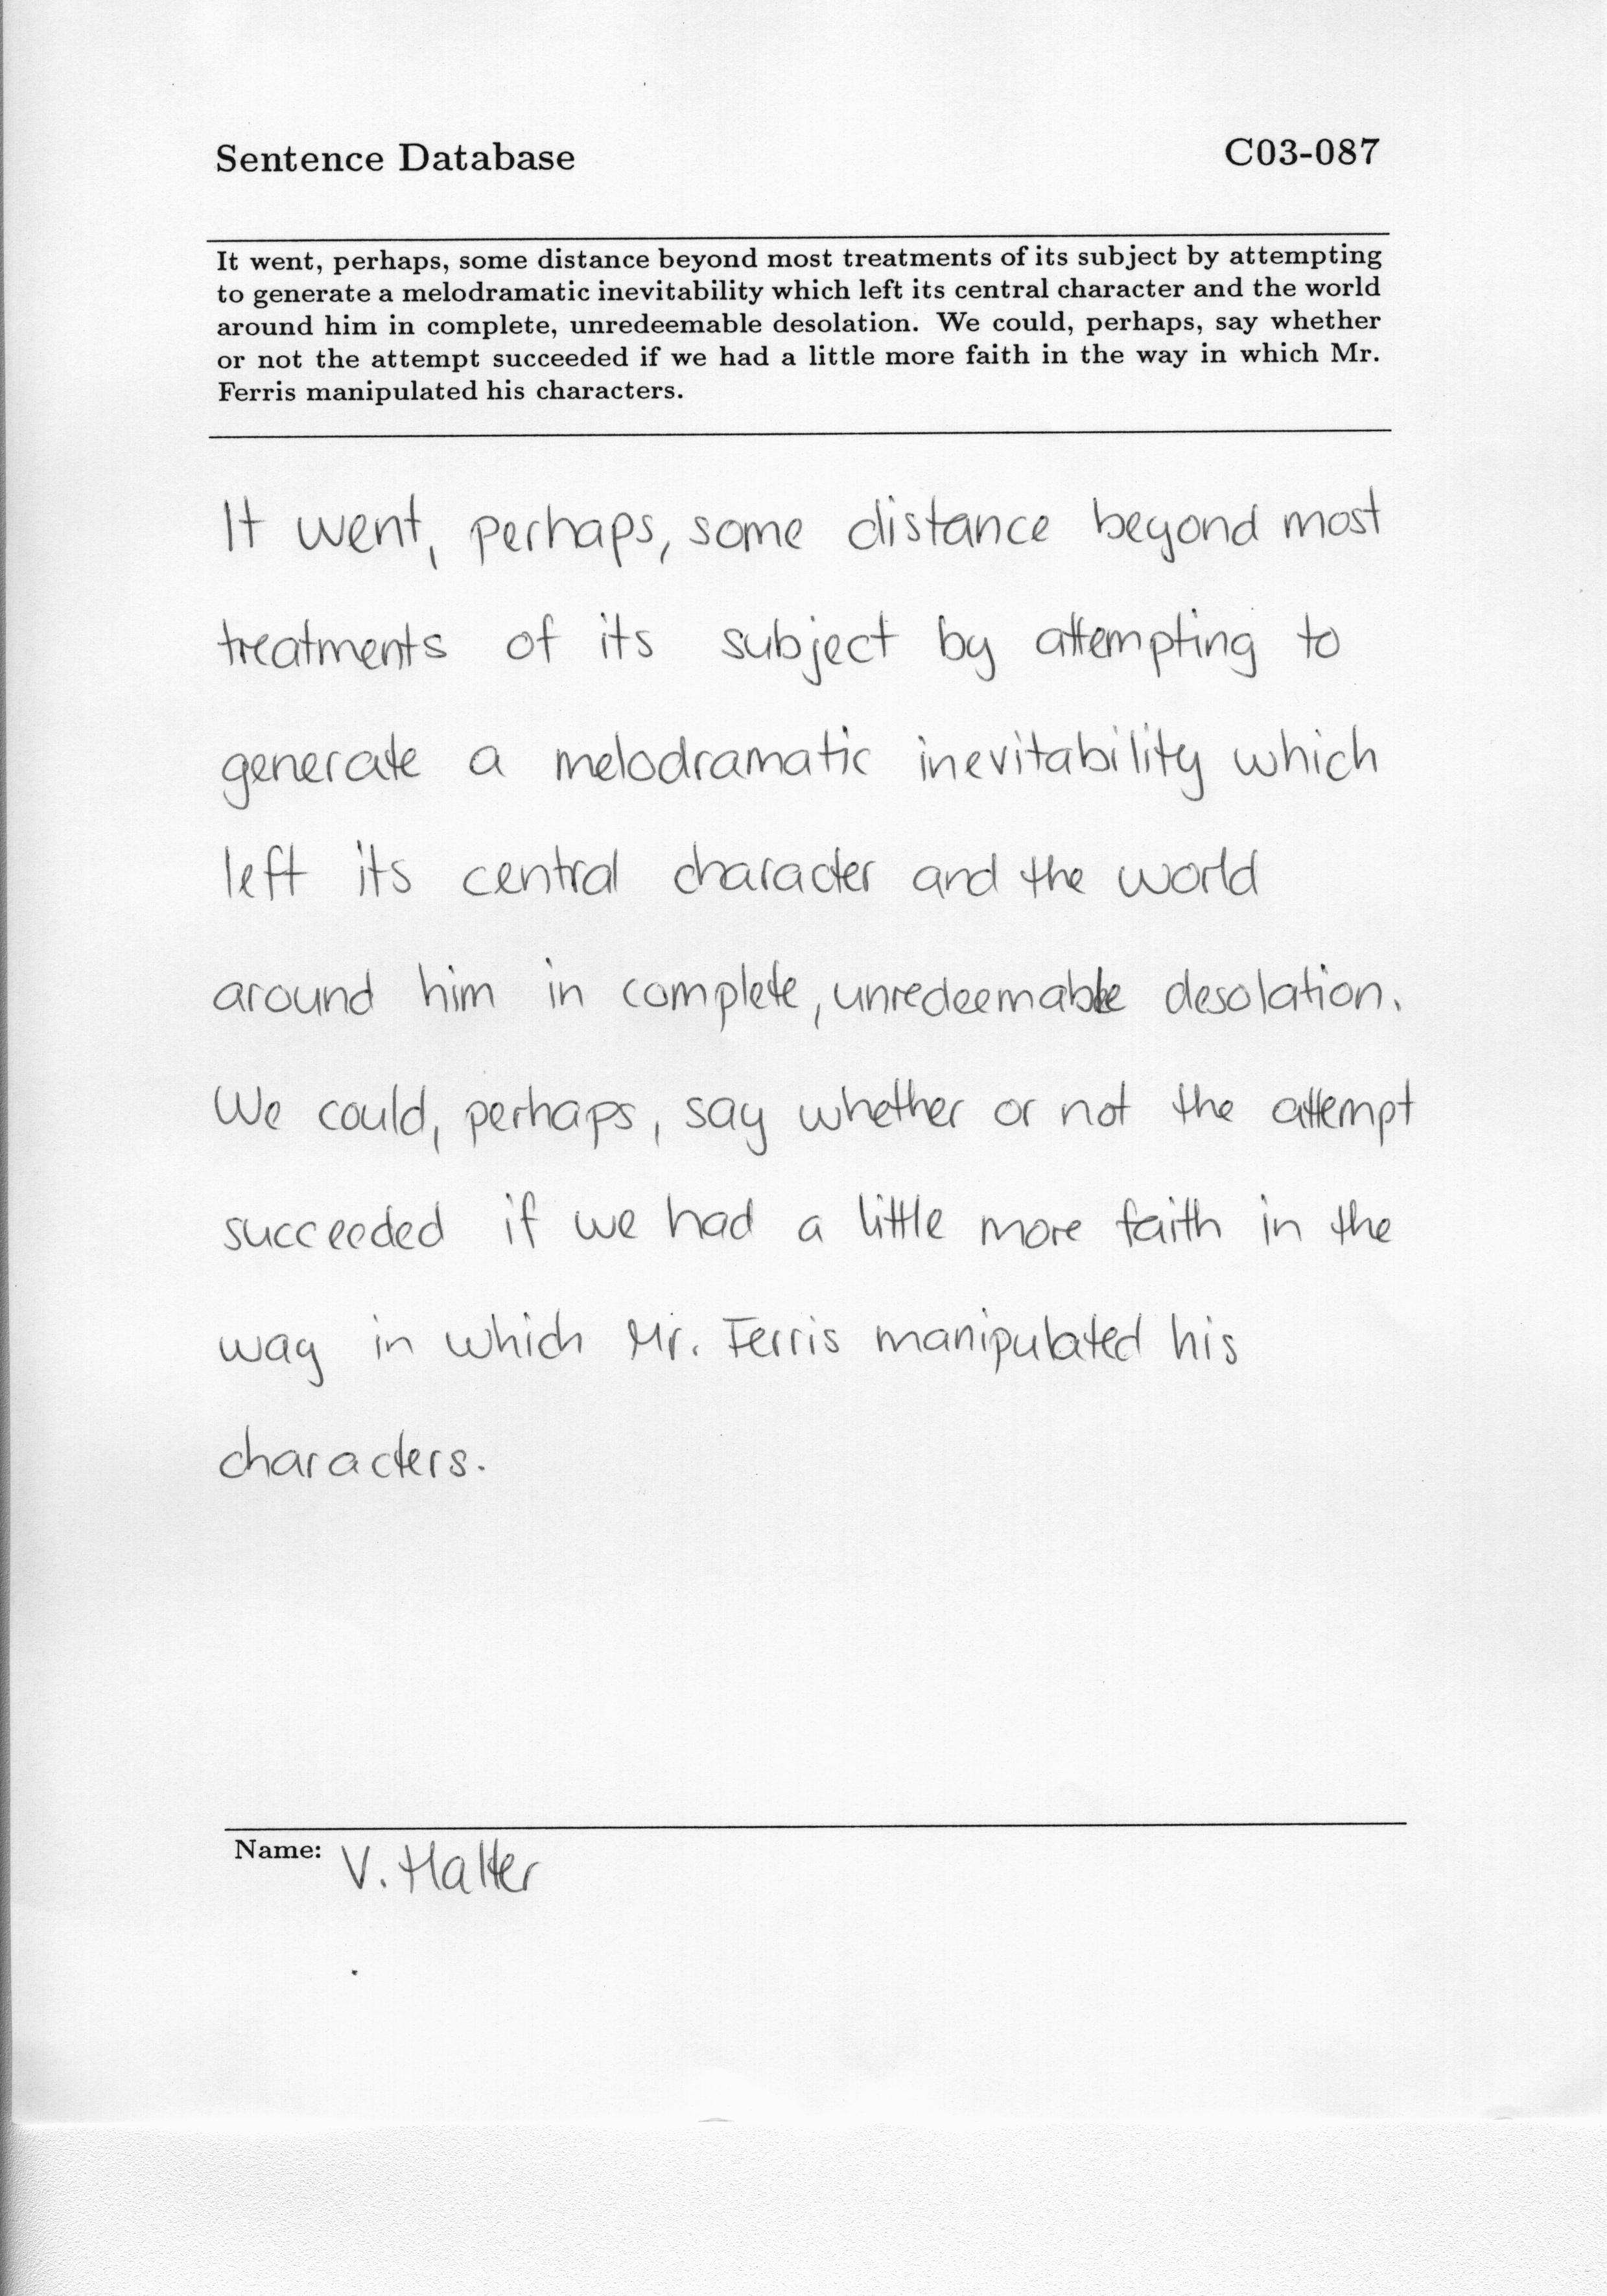 Sentence Database
C03-087
It went, perhaps, some distance beyond most treatments of its subject by attempting
to generate a melodramatic inevitability which left its central character and the world
around him in complete, unredeemable desolation. We could, perhaps, say whether
or not the attempt succeeded if we had a little more faith in the way in which Mr.
Ferris manipulated his characters.
It went, perhaps, some distance beyond most
treatments of its subject by attempting to
generate a melodramatic inevitability which
left its central character and the world
around him in complete, unredeemable desolation.
We could, perhaps, say whether or not the attempt
succeeded if we had a little more faith in the
way in which Mr. Ferris manipulated his
characters.
Name: V. Halter